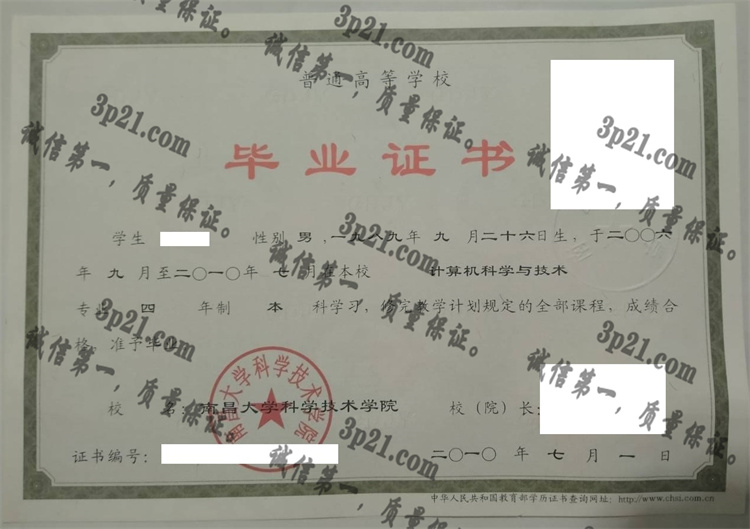 普通高等学校
毕业证书
学生 性别 男，一九八九年 九 月二十六日生，于二〇〇六
年 九 月至二〇一〇年 七 月在本校 计算机科学与技术
专业 四 年制 本 科学习，修完教学计划规定的全部课程，成绩合
格，准予毕业。
校 名：南昌大学科学技术学院 校（院）长：
南昌大学科学技术学院
证书编号： 二〇一〇 年 七 月 一 日
中华人民共和国教育部学历证书查询网址：http://www.chsi.com.cn
3p21.com
诚信第一，质量保证。
3p21.com
诚信第一，质量保证。
3p21.com
诚信第一，质量保证。
3p21.com
诚信第一，质量保证。
3p21.com
诚信第一，质量保证。
3p21.com
诚信第一，质量保证。
3p21.com
诚信第一，质量保证。